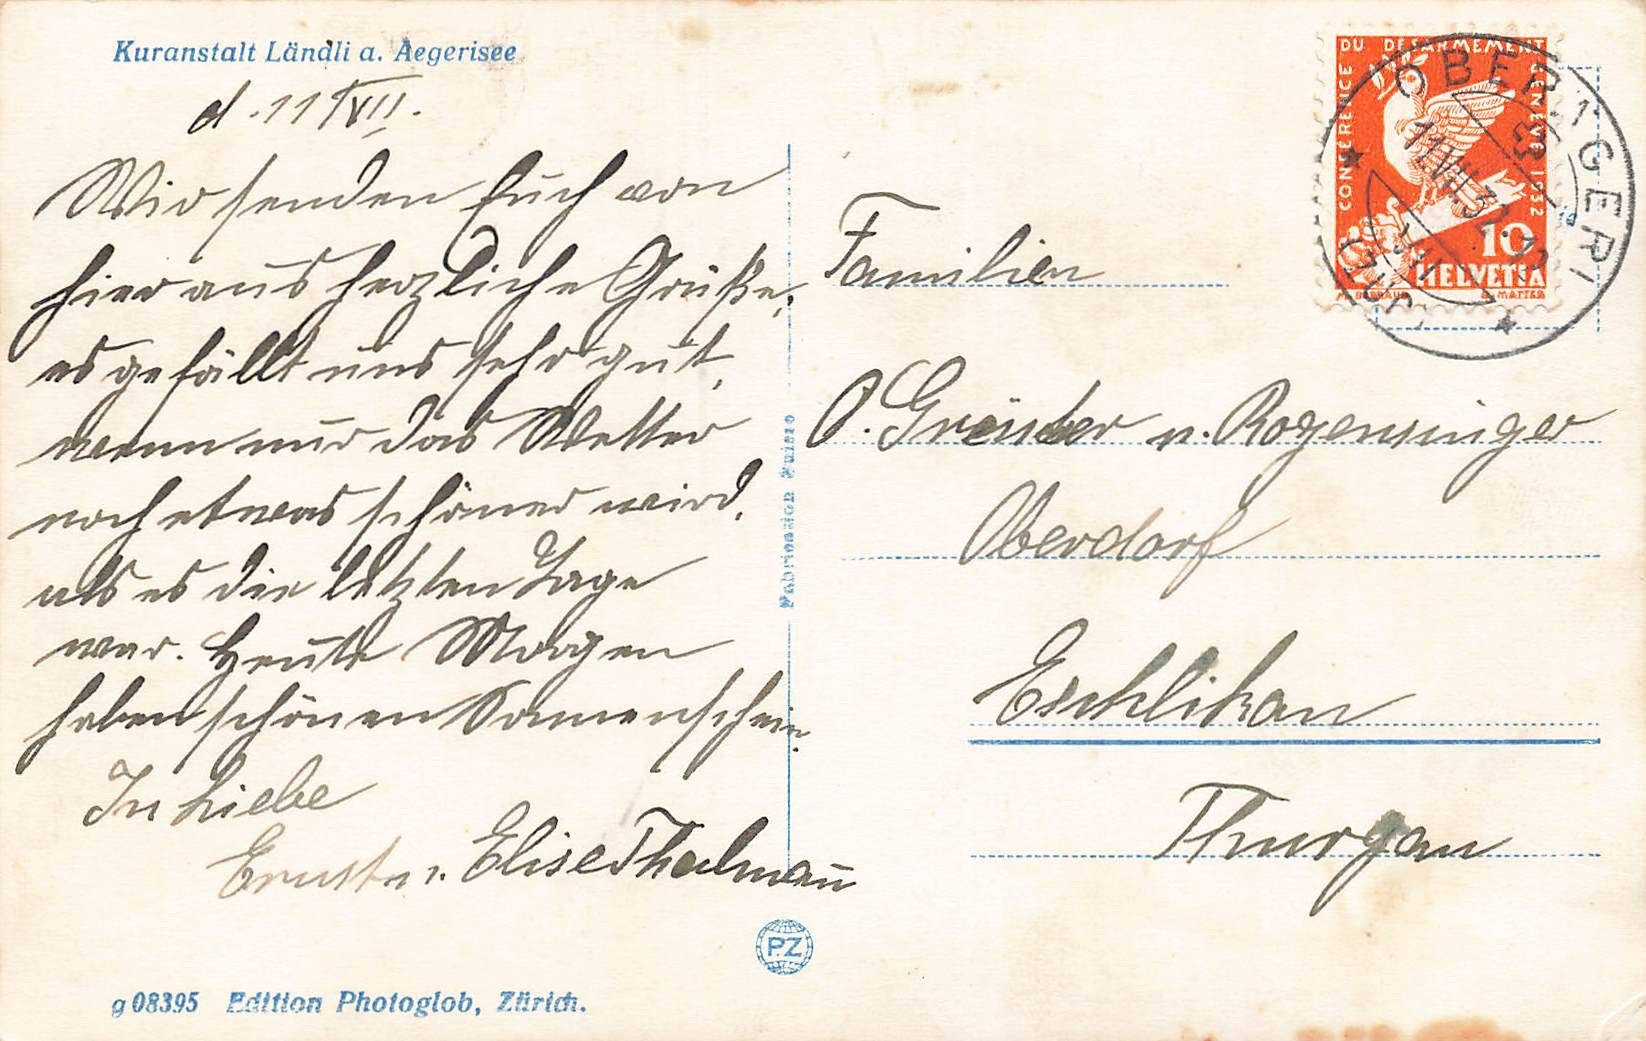 Kuranstalt Ländli a. Aegerisee
d. 11/VII.
Wir senden Euch von
hier aus herzliche Grüße,
es gefällt uns sehr gut,
wenn nur das Wetter
noch etwas schöner wird,
als es die letzten Tage
war. Heute Morgen
haben schönen Sonnenschein.
In Liebe
Ernst u. Elise Thalmañ
g 08395 Edition Photoglob, Zürich.
Fabrication Suisse
PZ
CONFÉRENCE DU DÉSARMEMENT GENÈVE 1932
10
HELVETIA
OBERÄGERI
11.VII.32
(ZUG)
Familien
Grüuter u. Rozensinger
Oberdorf
Eschlikon
Thurgau